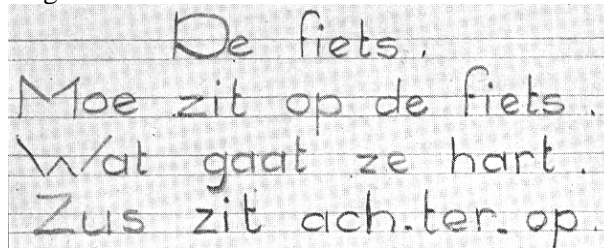 De fiets.
Moe zit op de fiets.
Wat gaat ze hart.
Zus zit ach-ter-op.